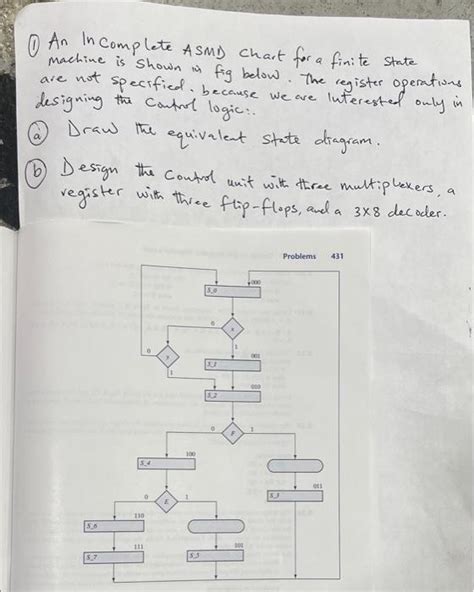 ① An Incomplete ASMD chart for a finite state
machine is shown in fig below. The register operations
are not specified, because we are Interested only in
designing the Control logic:.
ⓐ Draw the equivalent state diagram.
ⓑ Design the control unit with three multiplexers, a
register with three flip-flops, and a 3X8 decoder.
Problems 431
000
S_0
0
x
1
0
1
001
S_1
010
S_2
0
F
1
100
S_4
011
S_3
0
E
1
110
S_6
111
S_7
101
S_5